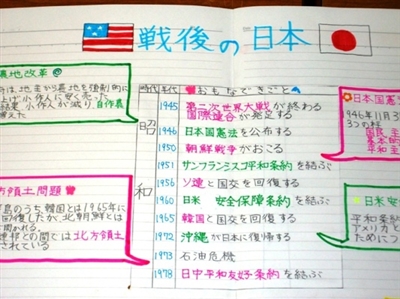 戦後の日本
農地改革
は、地主から農地を強制的に
上げ小作人に
結果 小作人が減り、自作農
えた
時代 年代 おもなできごと
昭和
1945 第二次世界大戦が終わる
国際連合が発足する
1946 日本国憲法を公布する
1950 朝鮮戦争がおこる
1951 サンフランシスコ平和条約を結ぶ
1956 ソ連と国交を回復する
1960 日米 安全保障条約を結ぶ
1965 韓国と国交を回復する
1972 沖縄が日本に復帰する
1973 石油危機
1978 日中平和友好条約を結ぶ
方領土問題
島のうち韓国とは1965年に
回復したが、北朝鮮とは
開かれる。
連邦との間では北方領土
されている
日本国憲
1946年11月3
3つの柱
国民主
基本的
平和主
日米安
平和条約
アメリカと
ために